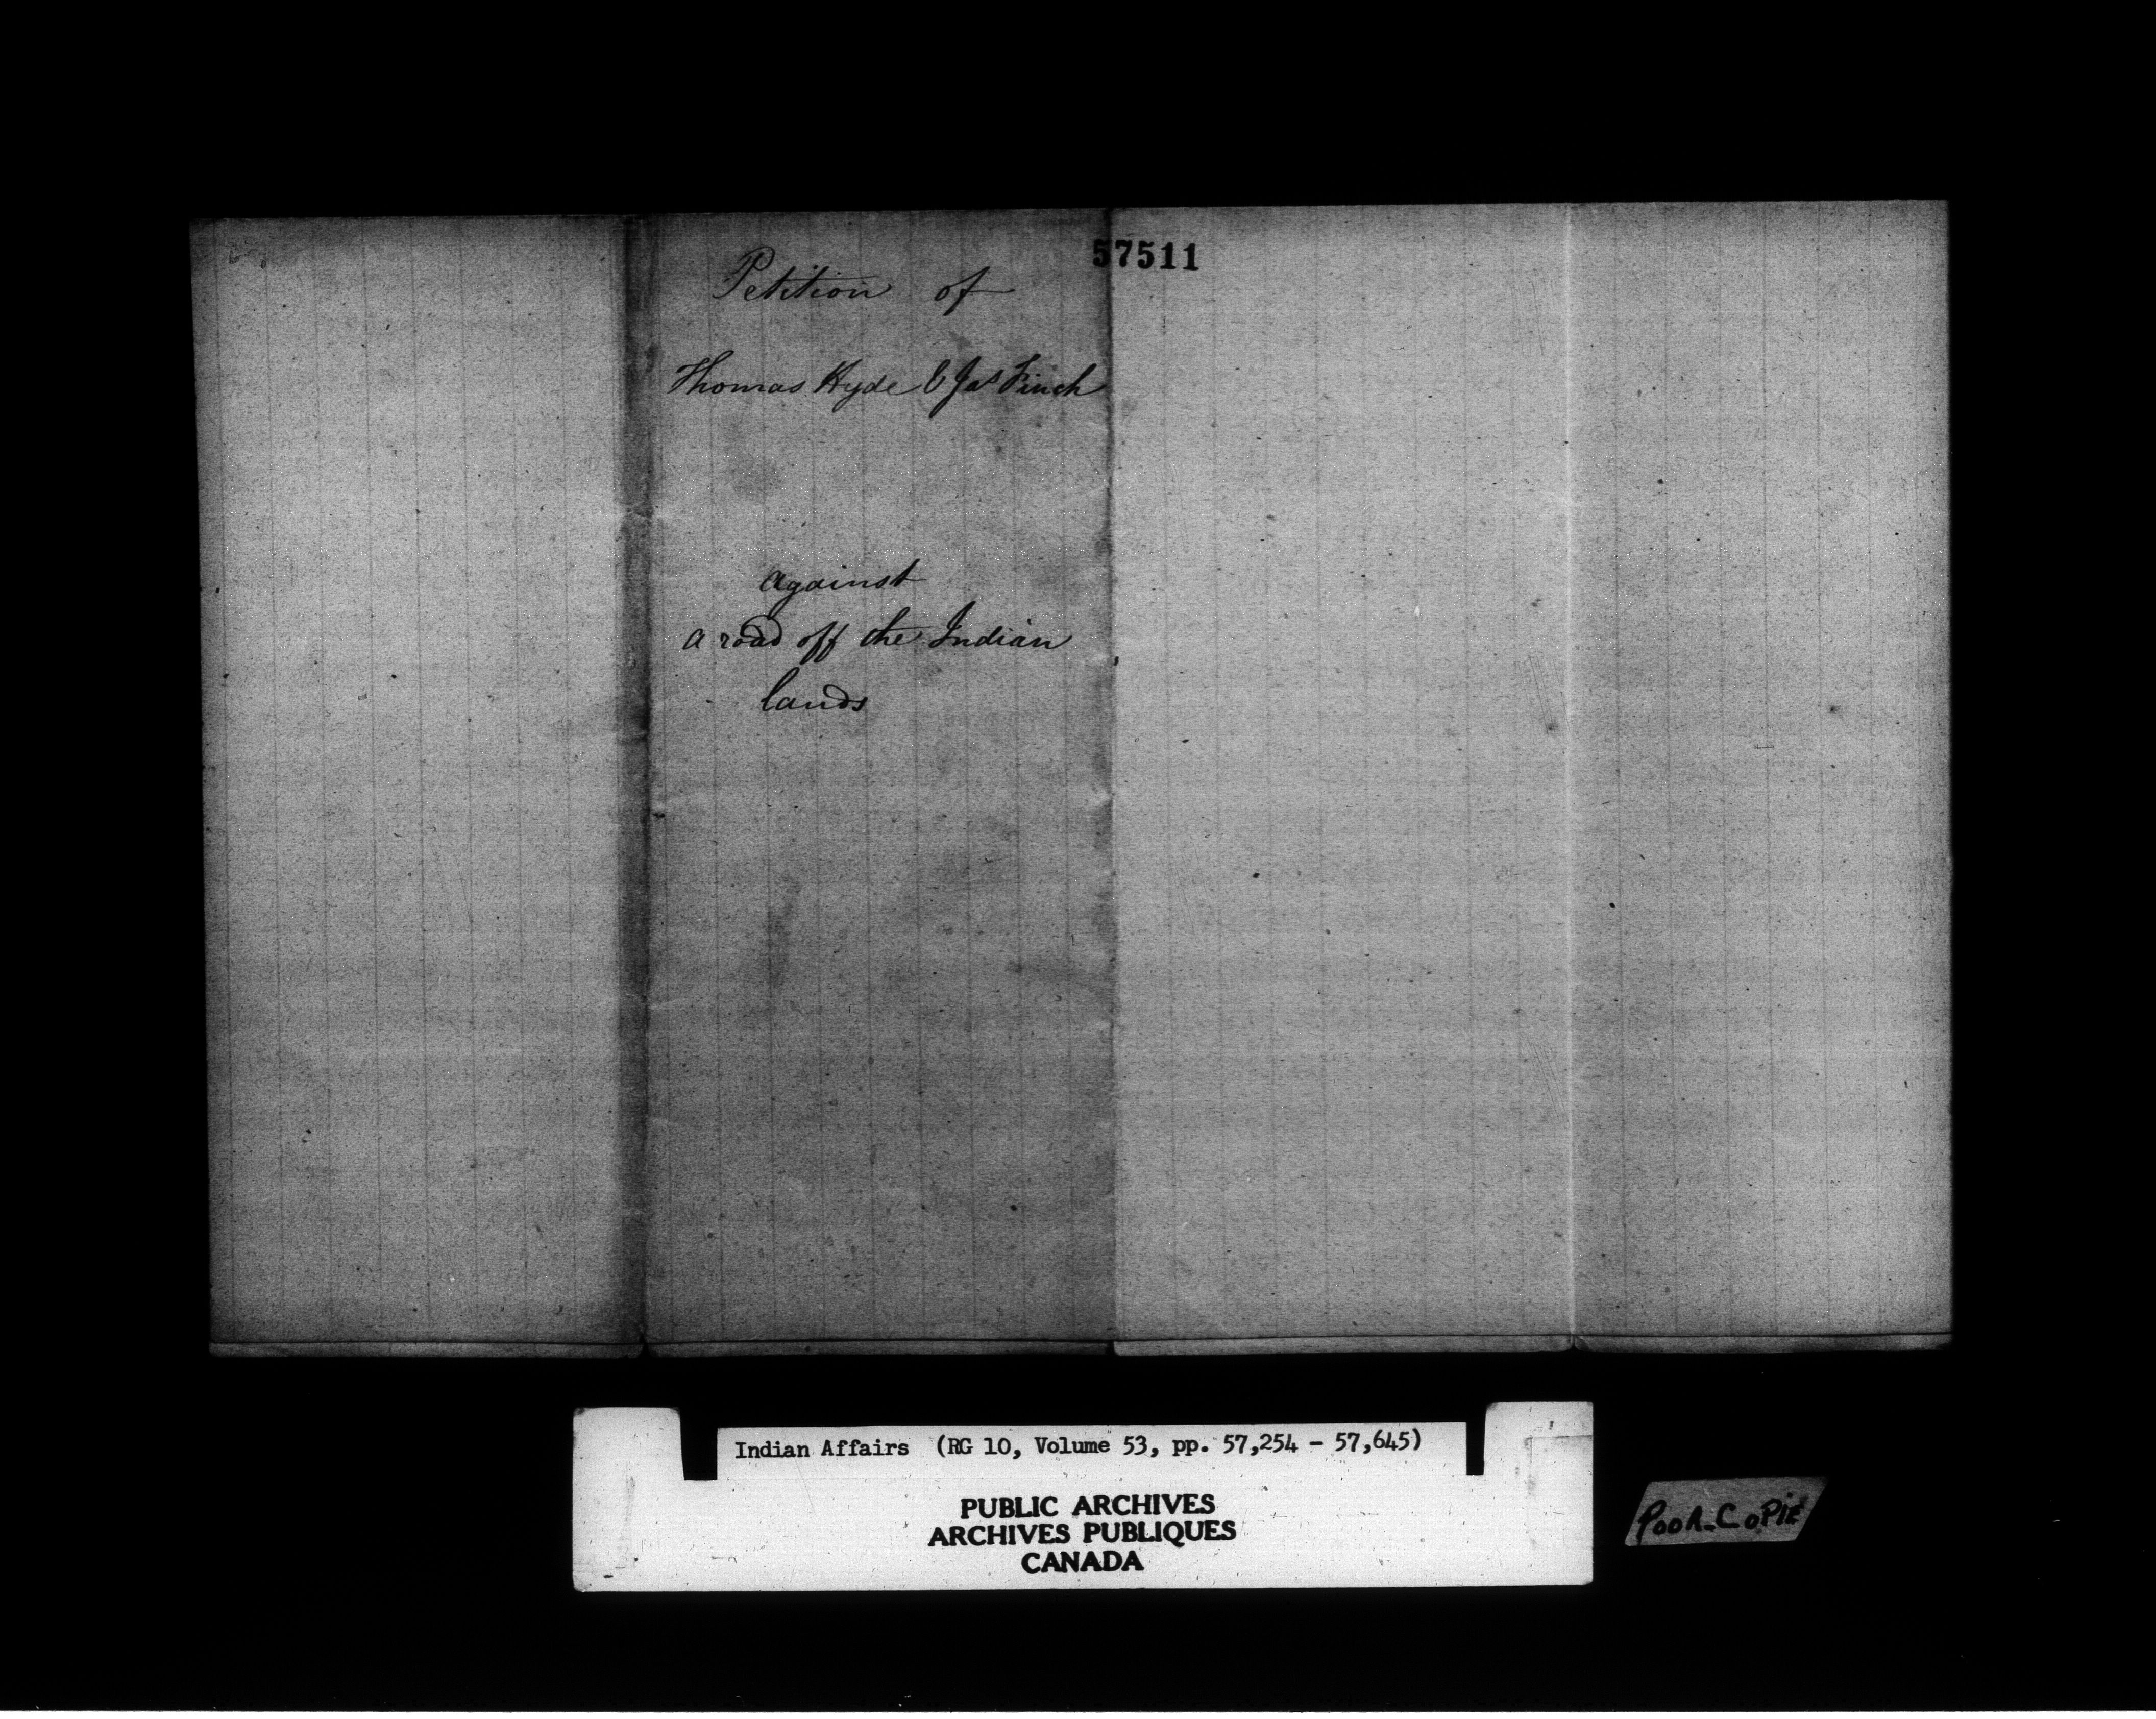 57511
Petition of
Thomas Hyde & Jas Finch
against
a road off the Indian
lands
Indian Affairs (RG 10, Volume 53, pp. 57,254 - 57,645)
PUBLIC ARCHIVES
ARCHIVES PUBLIQUES
CANADA
POOR COPIE